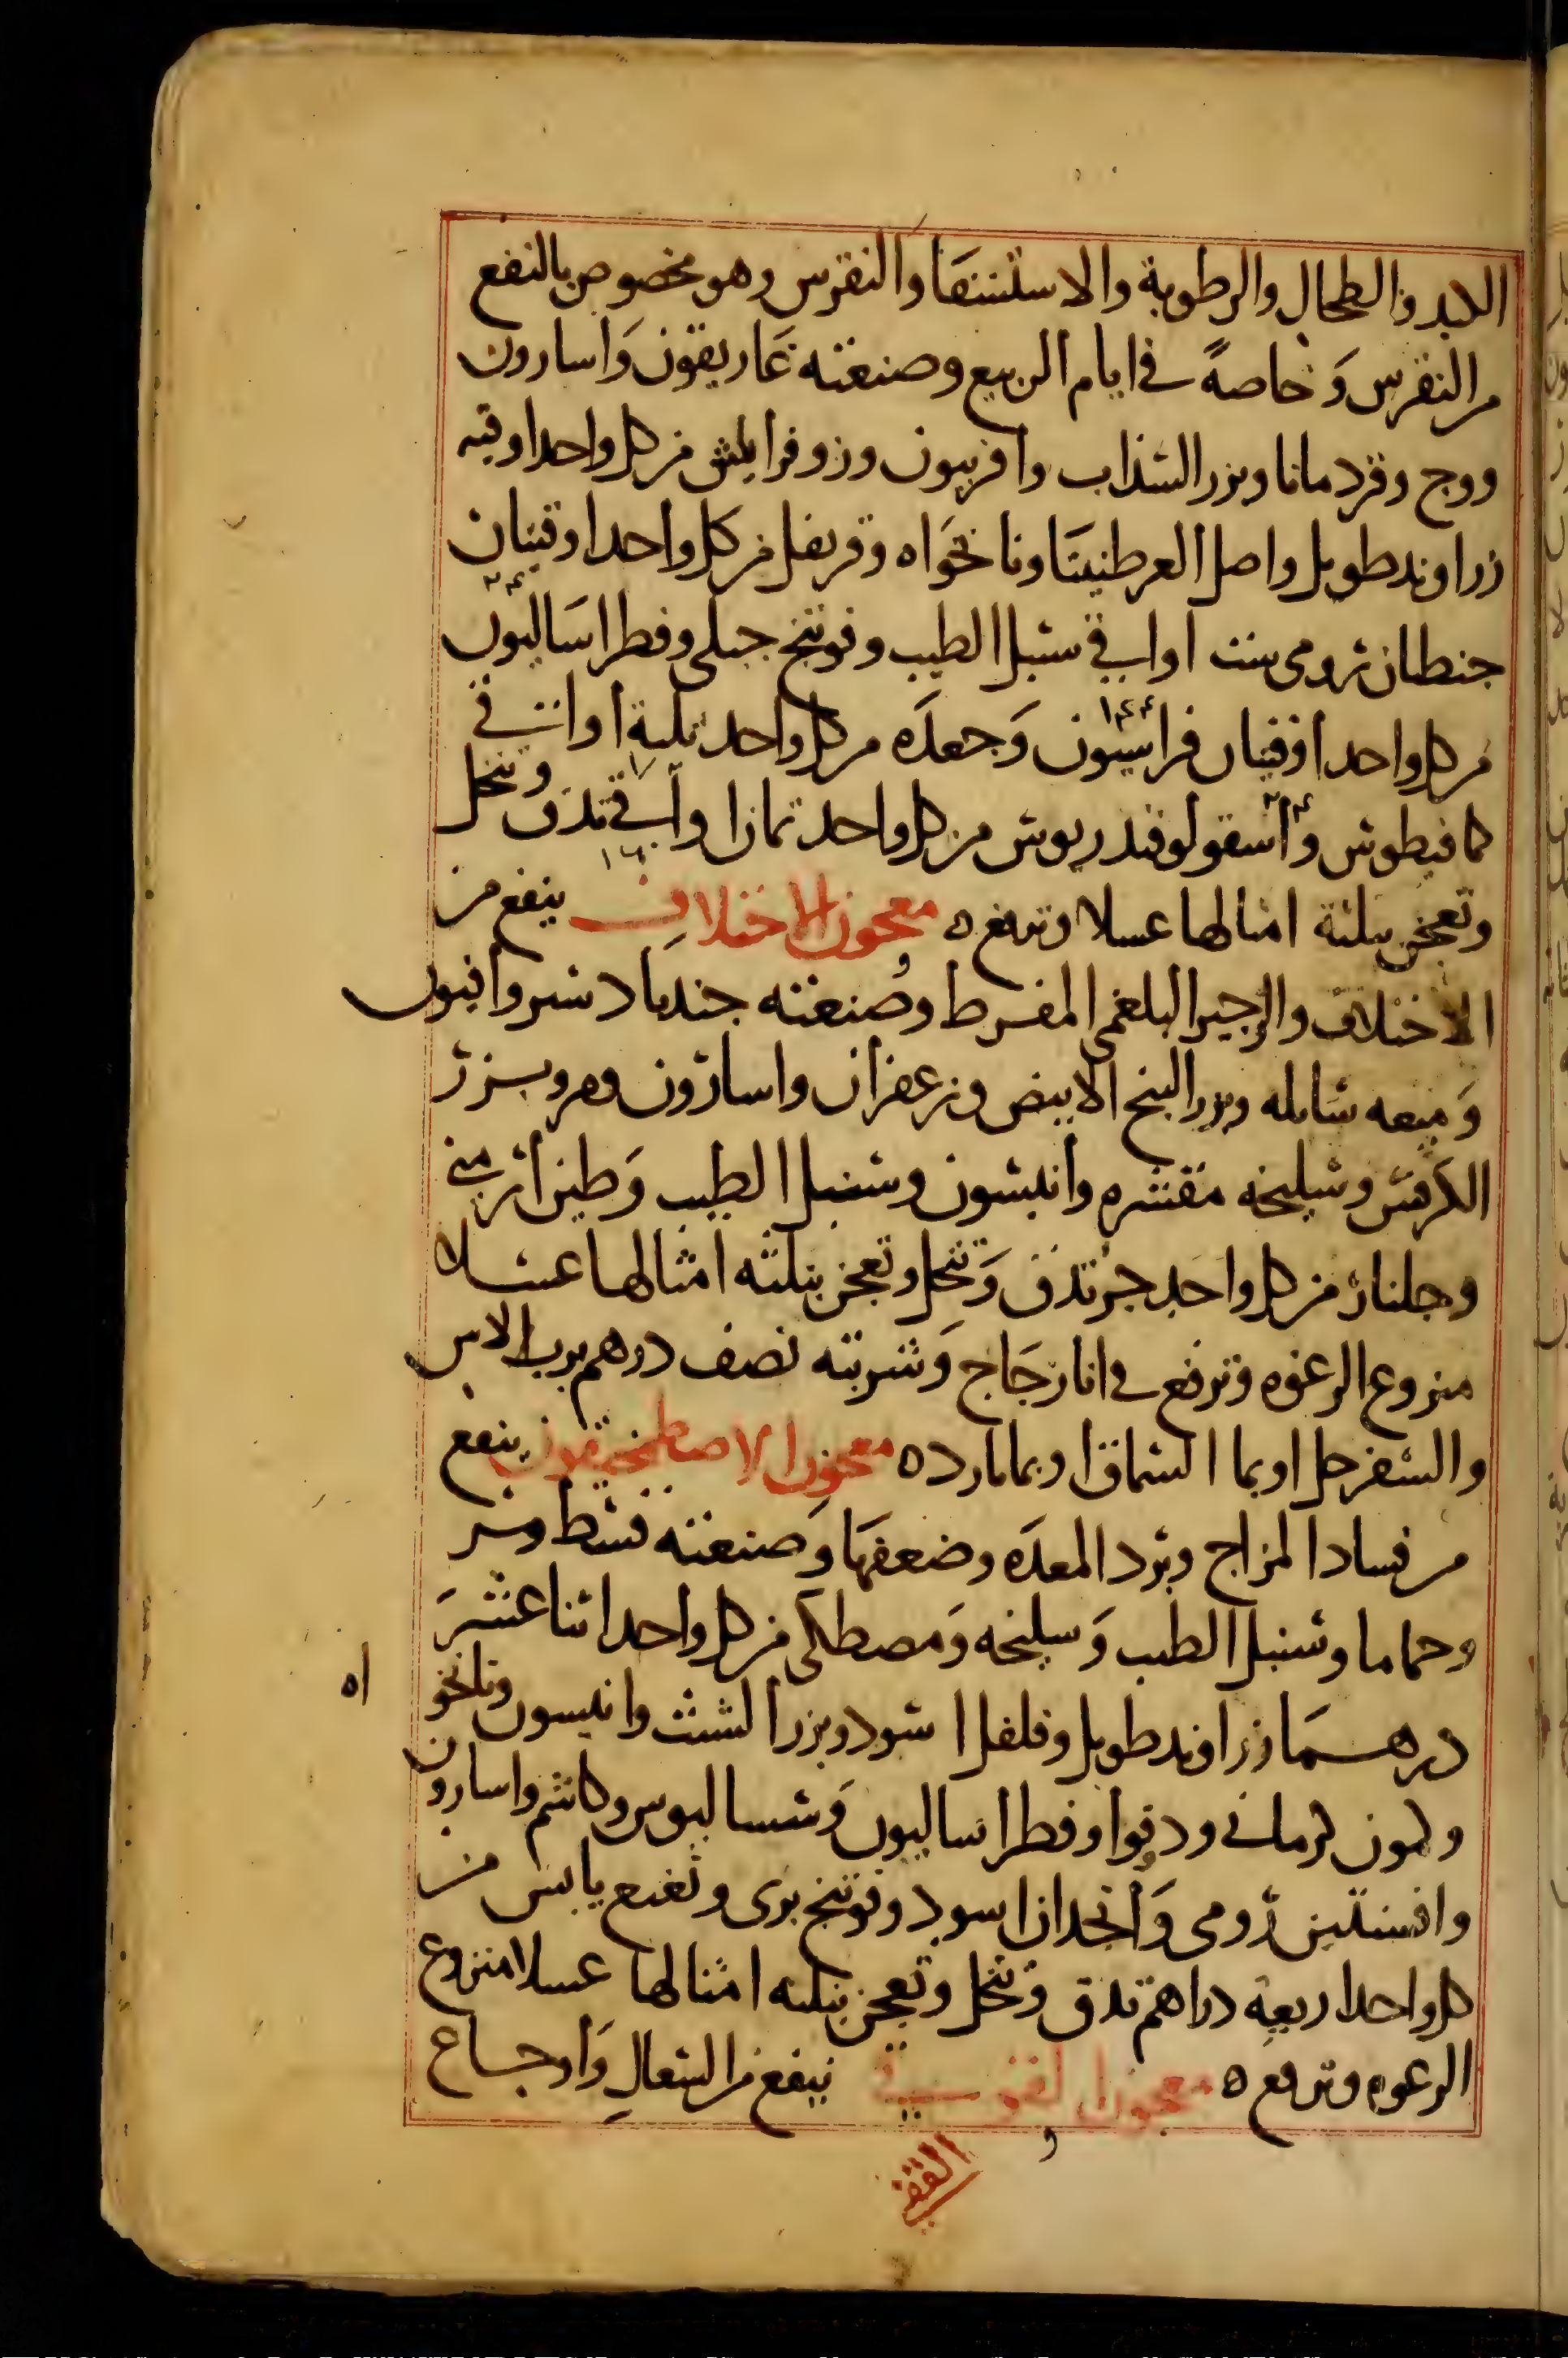 الكبد والطحال والرطوبة والاستسقا والنقرس وهو مخصوص بالنفع
من النقرس وَخاصةً في ايام الربيع وصنعته غاريقون وَاسارون
ووج وقردمانا وبزر السذاب وافربيون وزوفرا من كل واحد اوقيه
زراوند طويل واصل العرطنيثا ونانخَواه وقرنفل من كل واحد اوقيتان
جنطيان رومى ست اواقي سنبل الطيب وفوتنج جبلى وفطراساليون
من كل واحد اوقيتان فراسيون وَجعدَه من كل واحد ثلثة اواقي
كمافيطوس واسقولوقندريوس من كل واحد ثمان اواقي تدق وتنخل
وتعجن بثلثة امثالها عسلا وترفع ه معجون الاختلاف ينفع من
الاختلاف والزحير البلغمى المفرط وصنعته جندبادستر وافيون
وَميعه سَايله وبزر البنج الابيض وزعفران واسارون ومر وبزر
الكرفس وسليخه مقشره وانيسون وسنبل الطيب وَطين ارمني
وجلنار من كل واحد جز تدق وَتنخل وتعجن بثلثه امثالها عسلا
منزوع الرغوه وترفع في انا زجَاج وَشربته نصف درهم برب الاس
والسفرجل او بما السماق او بما بارد ه معجون الاصطمخيقون ينفع
من فساد المزاج وبرد المعدَه وضعفهَا وَصنعته قسط ومر
وحماما وسنبل الطيب وَسليخه وَمصطكى من كل واحد اثنا عشرَ
درهمَا زراوند طويل وفلفل اسود وبزر الشبث وانيسون ونانخو
اه
وكمون كرماني ودوقوا وفطراساليون وَسساليوس وكاشم واسارون
وافسنتين رُومى وَانجدان اسود وفوتنج برى ونعنع يابس من
كل واحد اربعة دراهم تدق وتنخل وتعجن بثلثه امثالها عسلا منزوع
الرغوه وترفع ه معجون ينفع من السعالِ وَاوجاع